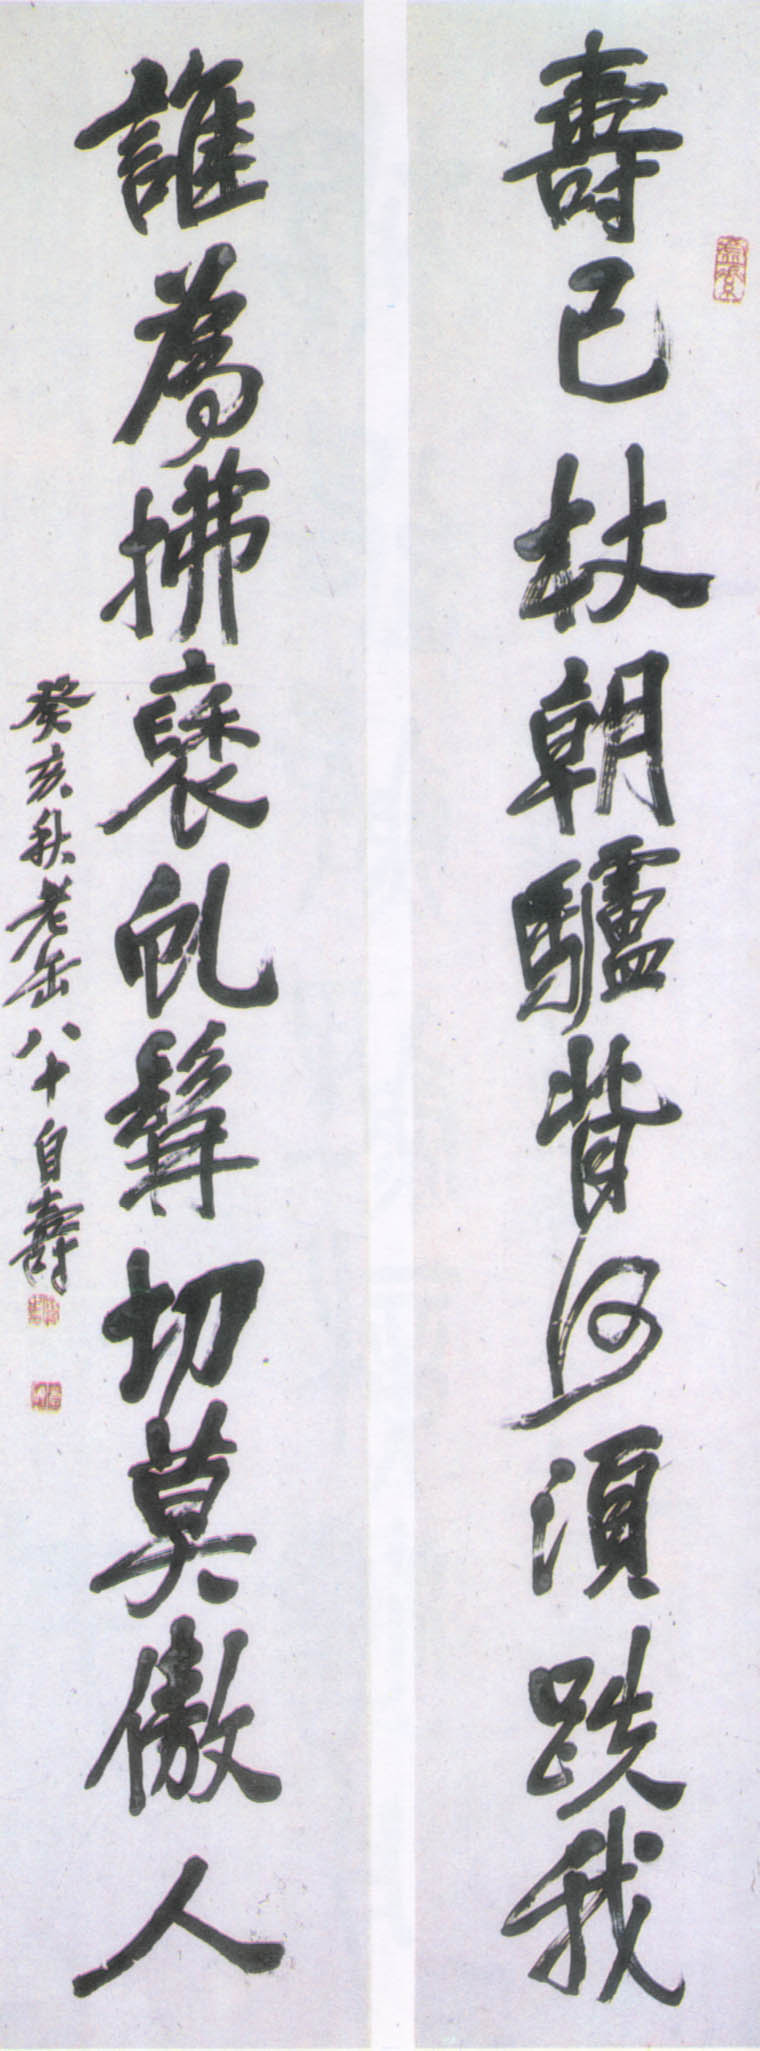 壽已杖朝驢背何須跌我
誰為拂裛虬髯切莫傲人
癸亥秋老缶八十自壽